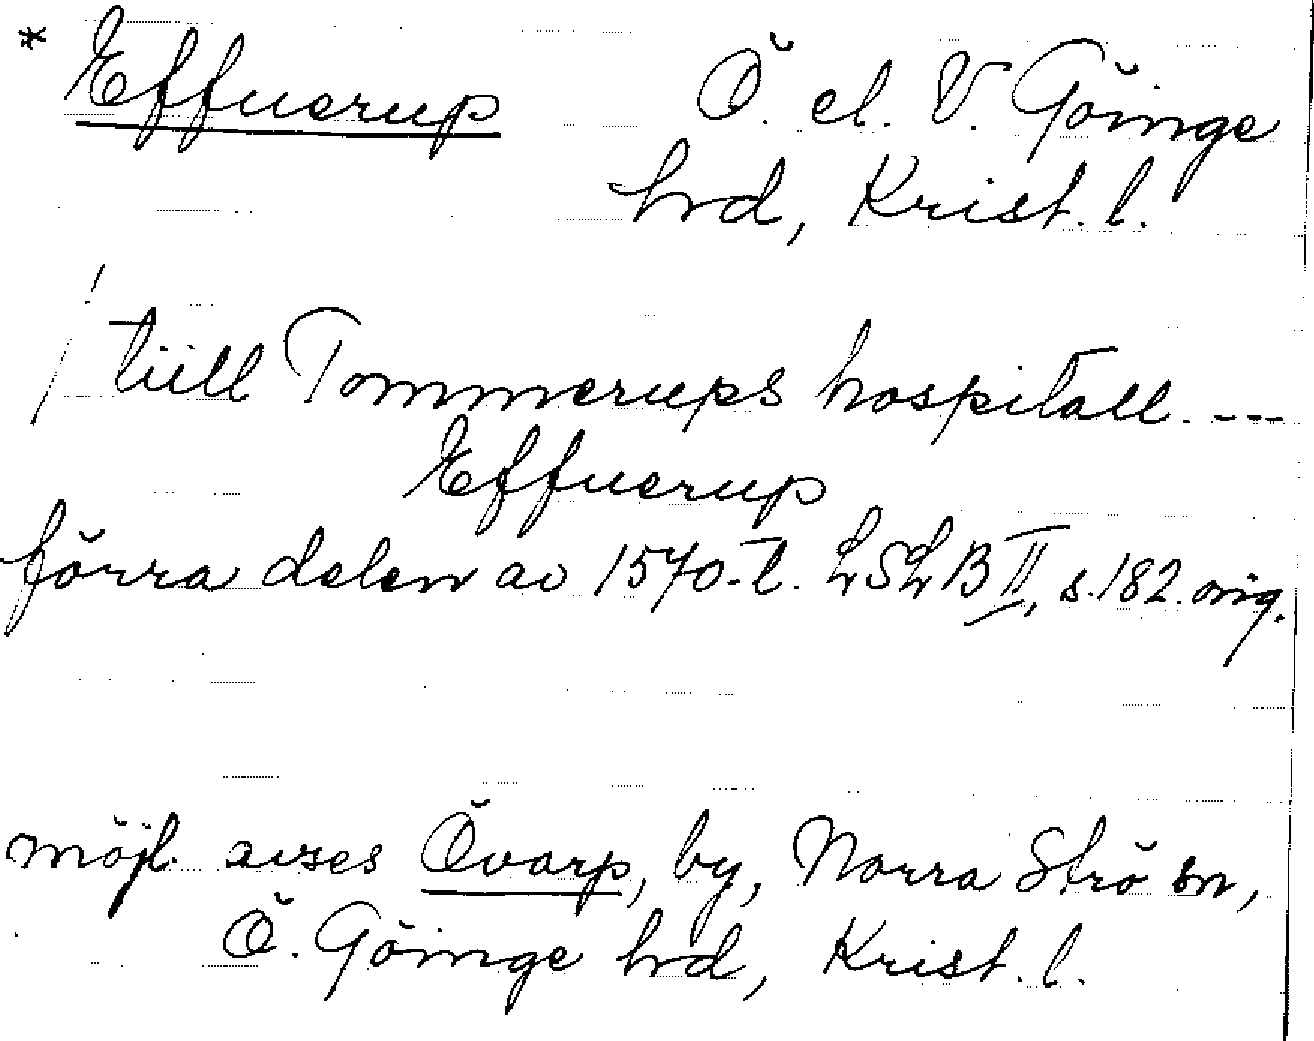 * Effuerup Ö. el. V. Göinge
hrd, Krist. l.
tiill Tommerups hospitall. ---
Effuerup
förra delen av 1570-t. LSLB II, s. 182. orig.
möjl. avses Övarp, by, Norra Strö sn,
Ö. Göinge hrd, Krist. l.